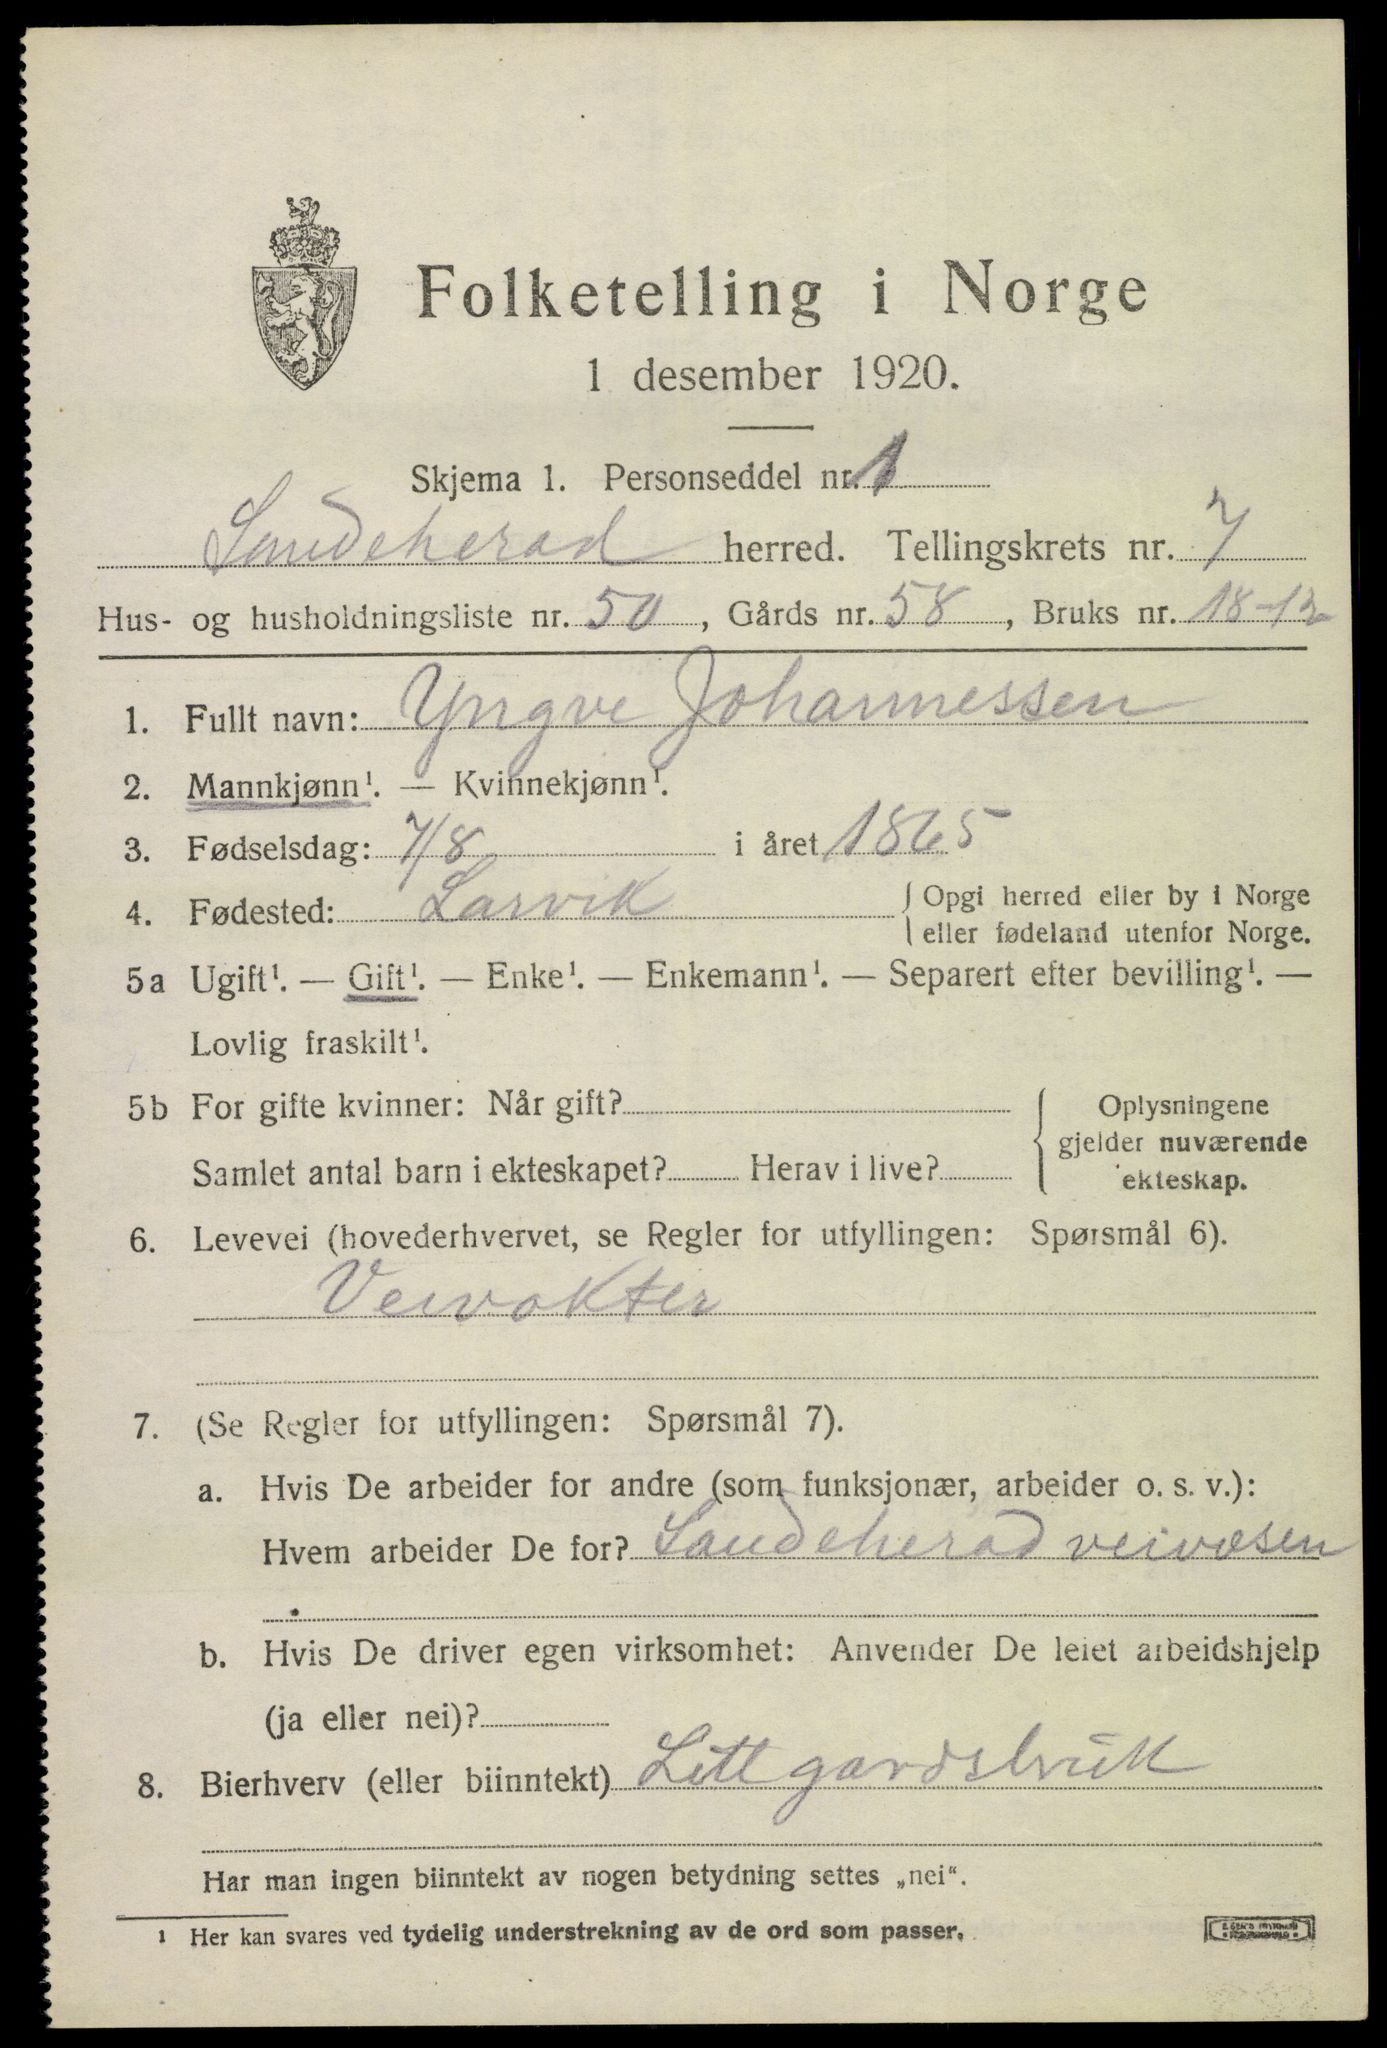 Folketelling i Norge
1 desember 1920.
Skjema 1. Personseddel nr. 1
Sandeherad herred. Tellingskrets nr. 7
Hus- og husholdningsliste nr. 50, Gårds nr. 58, Bruks nr. 18-12
1. Fullt navn: Yngve Johannessen
2. Mannkjønn¹. — Kvinnekjønn¹.
3. Fødselsdag: 7/8 i året 1865
4. Fødested: Larvik { Opgi herred eller by i Norge
eller fødeland utenfor Norge.
5a Ugift¹. — Gift¹. — Enke¹. — Enkemann¹. — Separert efter bevilling¹. —
Lovlig fraskilt¹.
5b For gifte kvinner: Når gift? { Oplysningene
gjelder nuværende
Samlet antal barn i ekteskapet? Herav i live? ekteskap.
6. Levevei (hovederhvervet, se Regler for utfyllingen: Spørsmål 6).
Veivokter
7. (Se Regler for utfyllingen: Spørsmål 7).
a. Hvis De arbeider for andre (som funksjonær, arbeider o. s. v.):
Hvem arbeider De for? Sandeherad veivæsen
b. Hvis De driver egen virksomhet: Anvender De leiet arbeidshjelp
(ja eller nei)?
8. Bierhverv (eller biinntekt) Litt gardsbruk
Har man ingen biinntekt av nogen betydning settes „nei“.
¹ Her kan svares ved tydelig understrekning av de ord som passer.